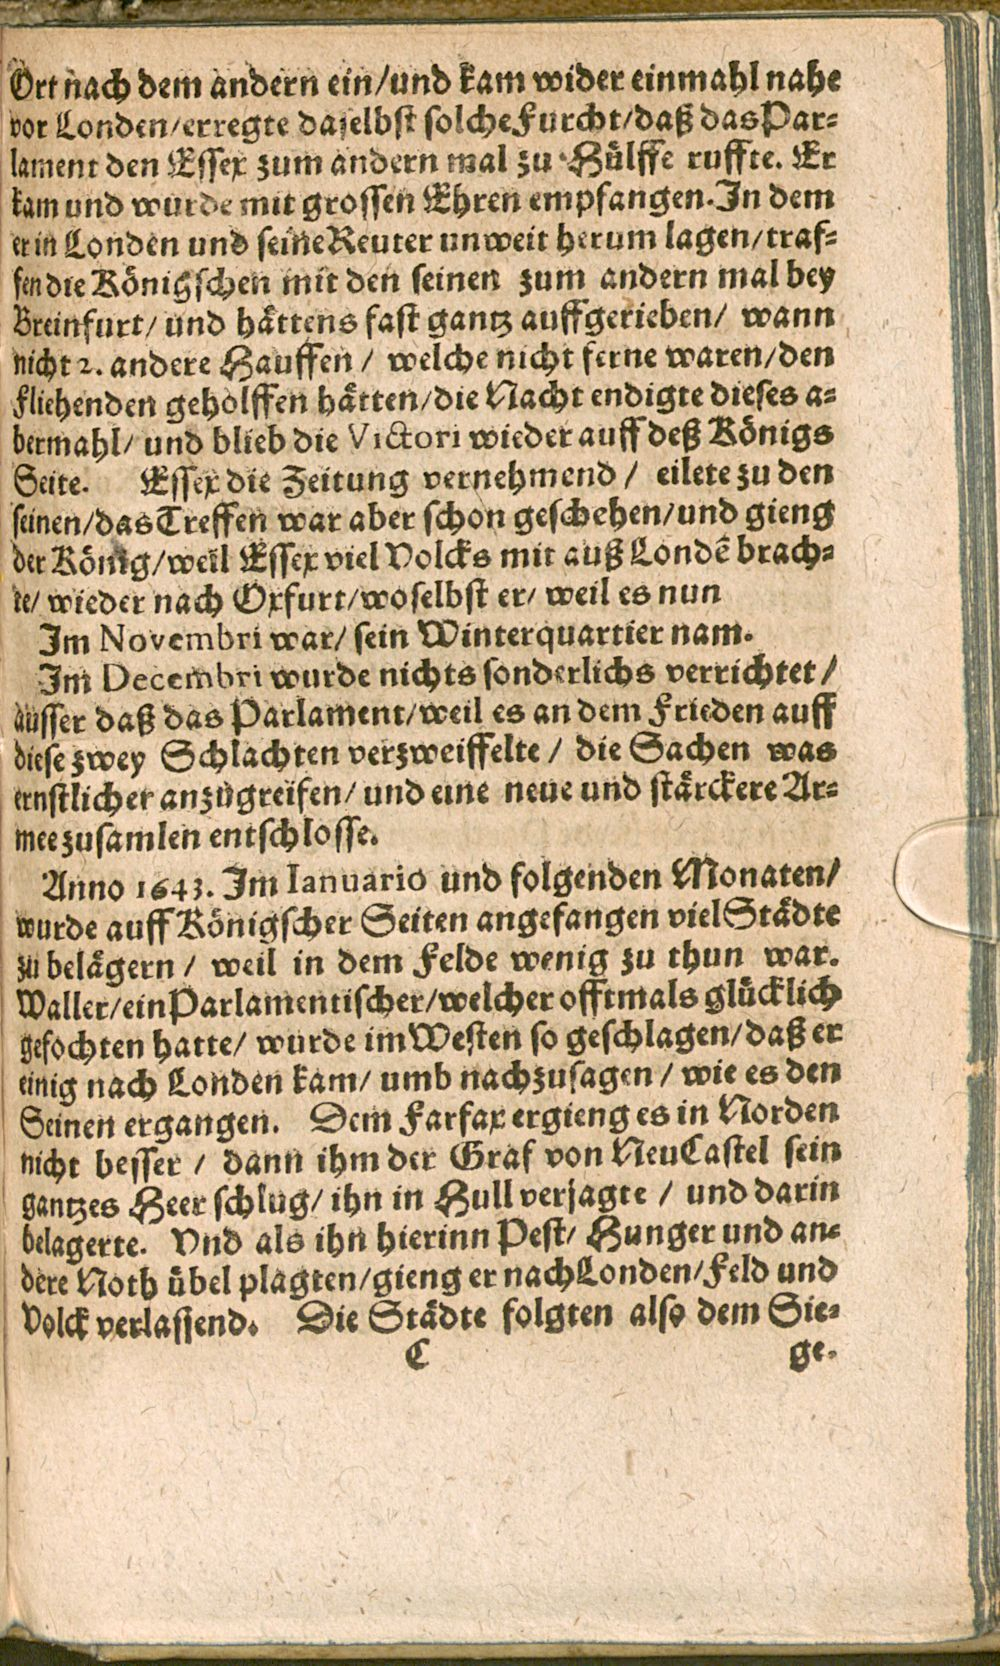 Ort nach dem andern ein/und kam wider einmahl nahe
vor Londen/erregte daselbst solche Furcht/daß das Par=
lament den Essex zum andern mal zu Hülffe ruffte. Er
kam und wurde mit grossen Ehren empfangen. In dem
er in Londen und seine Reuter unweit herum lagen/traf=
fen die Königschen mit den seinen zum andern mal bey
Breinfurt/ und hättens fast gantz auffgerieben/ wann
nicht 2. andere Hauffen / welche nicht ferne waren/den
Fliehenden geholffen hätten/die Nacht endigte dieses a=
bermahl/ und blieb die Victori wieder auff deß Königs
Seite. Essex die Zeitung vernehmend / eilete zu den
seinen/das Treffen war aber schon geschehen/und gieng
der König/weil Essex viel Volcks mit auß Londē brach=
te/ wieder nach Oxfurt/woselbst er/ weil es nun
Im Novembri war/ sein Winterquartier nam.
Im Decembri wurde nichts sonderlichs verrichtet /
ausser daß das Parlament/weil es an dem Frieden auff
diese zwey Schlachten verzweiffelte / die Sachen was
ernstlicher anzugreifen/ und eine neue und stärckere Ar=
mee zusamlen entschlosse.
Anno 1643. Im Ianuario und folgenden Monaten/
wurde auff Königscher Seiten angefangen viel Städte
zu belägern / weil in dem Felde wenig zu thun war.
Waller/ein Parlamentischer/welcher offtmals glücklich
gefochten hatte/ wurde im Westen so geschlagen/daß er
einig nach Londen kam/ umb nachzusagen / wie es den
Seinen ergangen. Dem Farfax ergieng es in Norden
nicht besser / dann ihm der Graf von NeuCastel sein
gantzes Heer schlug/ ihn in Hull verjagte / und darin
belagerte. Vnd als ihn hierinn Pest/ Hunger und an=
dere Noth übel plagten/gieng er nach Londen/Feld und
Volck verlassend. Die Städte folgten also dem Sie=
C ge.